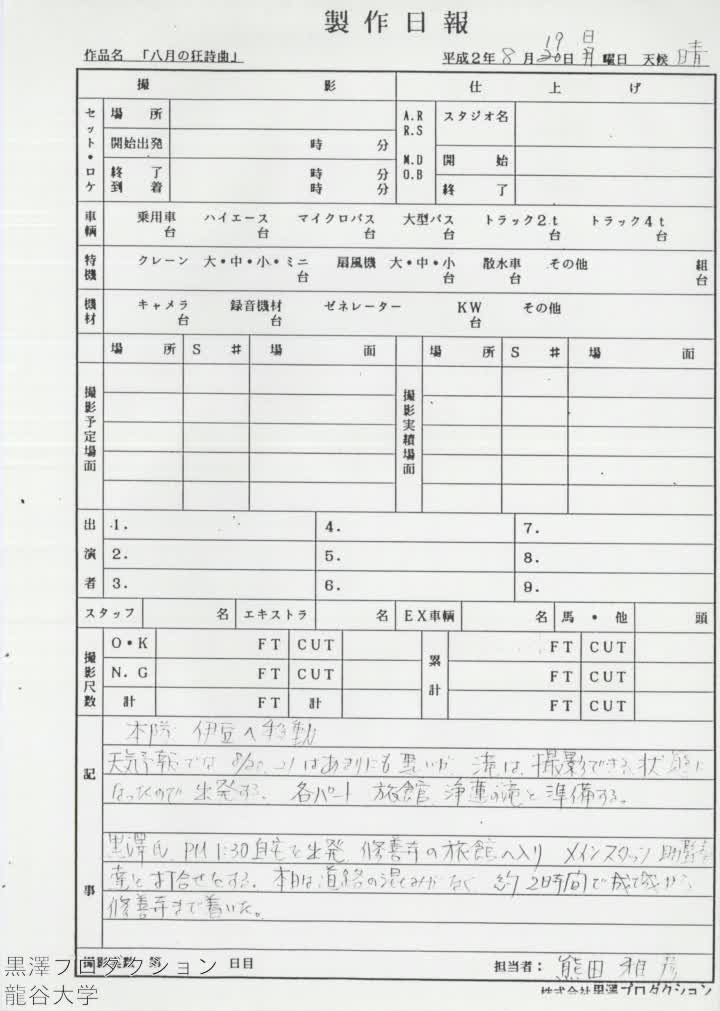 製作日報
作品名 「八月の狂詩曲」
平成2年 8月 19日 日曜日 天候 晴
撮 影 仕 上 げ
セット・ロケ 場 所
開始出発 時 分
終 了 時 分
到 着 時 分
A.R スタジオ名
R.S
M.D 開 始
O.B
終 了
車輌 乗用車 ハイエース マイクロバス 大型バス トラック2t トラック4t
台 台 台 台 台 台
特機 クレーン 大・中・小・ミニ 扇風機 大・中・小 散水車 その他 組
台 台 台 台
機材 キャメラ 録音機材 ゼネレーター KW その他
台 台 台
場 所 S # 場 面 場 所 S # 場 面
撮影予定場面 撮影実績場面
出演者
1. 4. 7.
2. 5. 8.
3. 6. 9.
スタッフ 名 エキストラ 名 EX車輌 名 馬・他 頭
撮影尺数 O・K FT CUT 累計 FT CUT
N.G FT CUT FT CUT
計 FT 計 FT CUT
記事
本隊 伊豆へ移動
天気予報では 8/20, 21 はあまりにも悪いが 滝は、撮影できる状態に
なったので 出発する。 各パート 旅館 浄蓮の滝と準備する。
黒澤氏 PM 1:30 自宅を出発 修善寺の旅館へ入り メインスタッフ 助監督
等と打合せをする。 本日は道路の混みがなく 約2時間で成城から
修善寺まで着いた。
撮影実数 第 日目 担当者: 熊田雅彦
株式会社黒澤プロダクション
黒澤プロダクション
龍谷大学